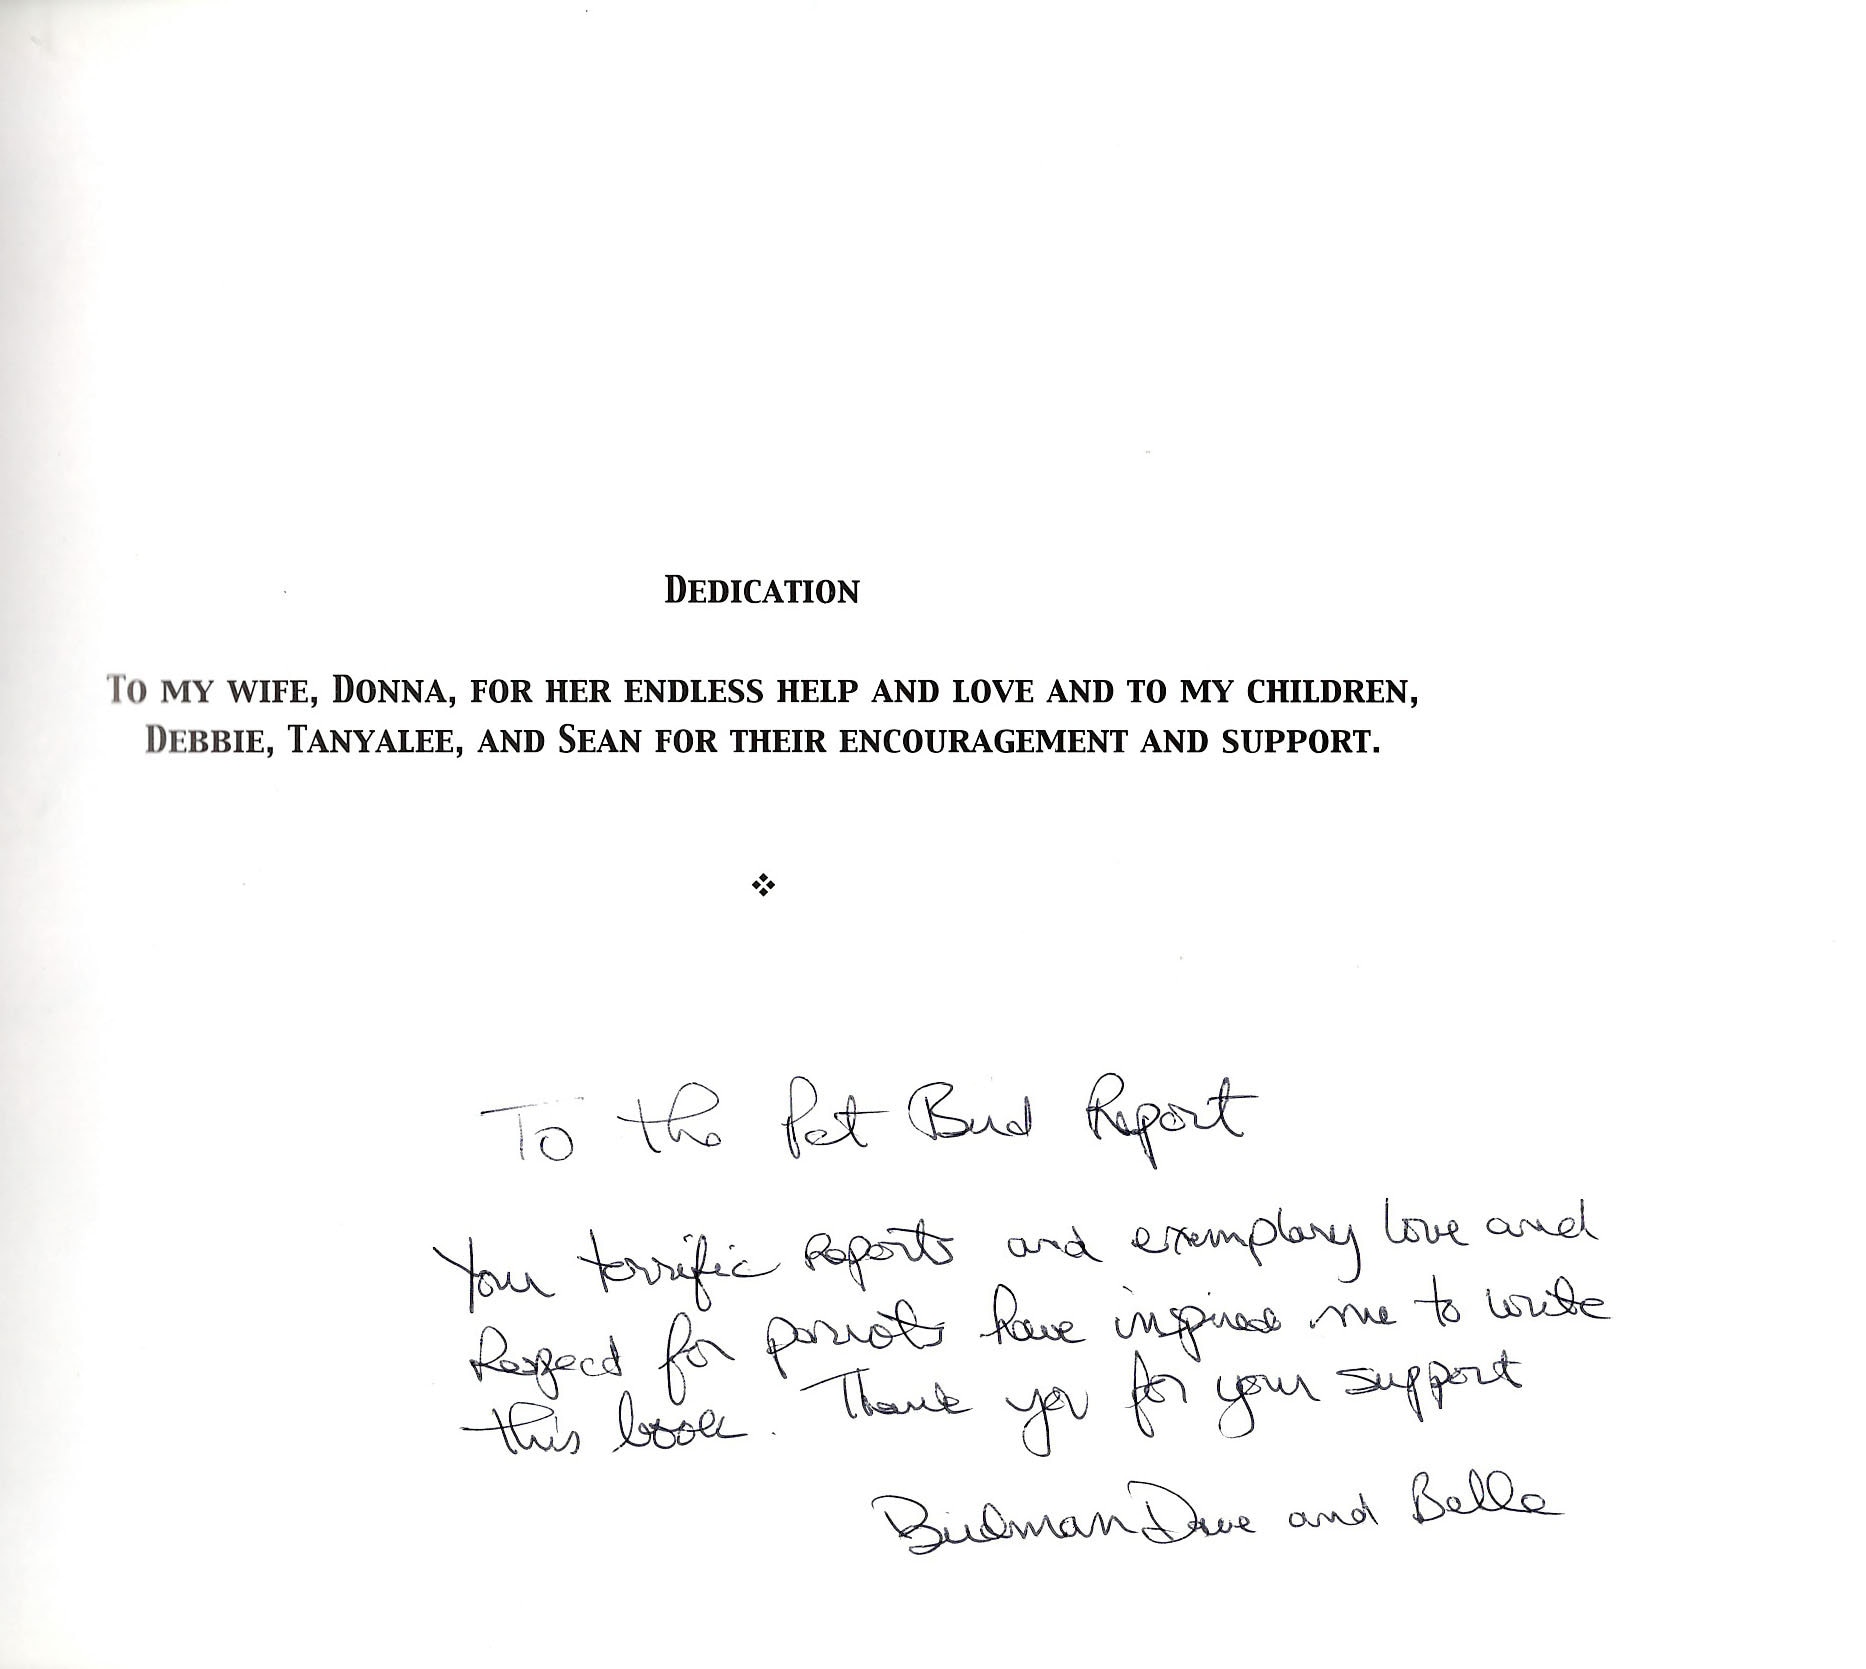 DEDICATION
TO MY WIFE, DONNA, FOR HER ENDLESS HELP AND LOVE AND TO MY CHILDREN,
DEBBIE, TANYALEE, AND SEAN FOR THEIR ENCOURAGEMENT AND SUPPORT.
To the Pet Bird Report
Your terrific reports and exemplary love and
Respect for parrots have inspired me to write
this book. Thank you for your support
Birdman Dave and Belle